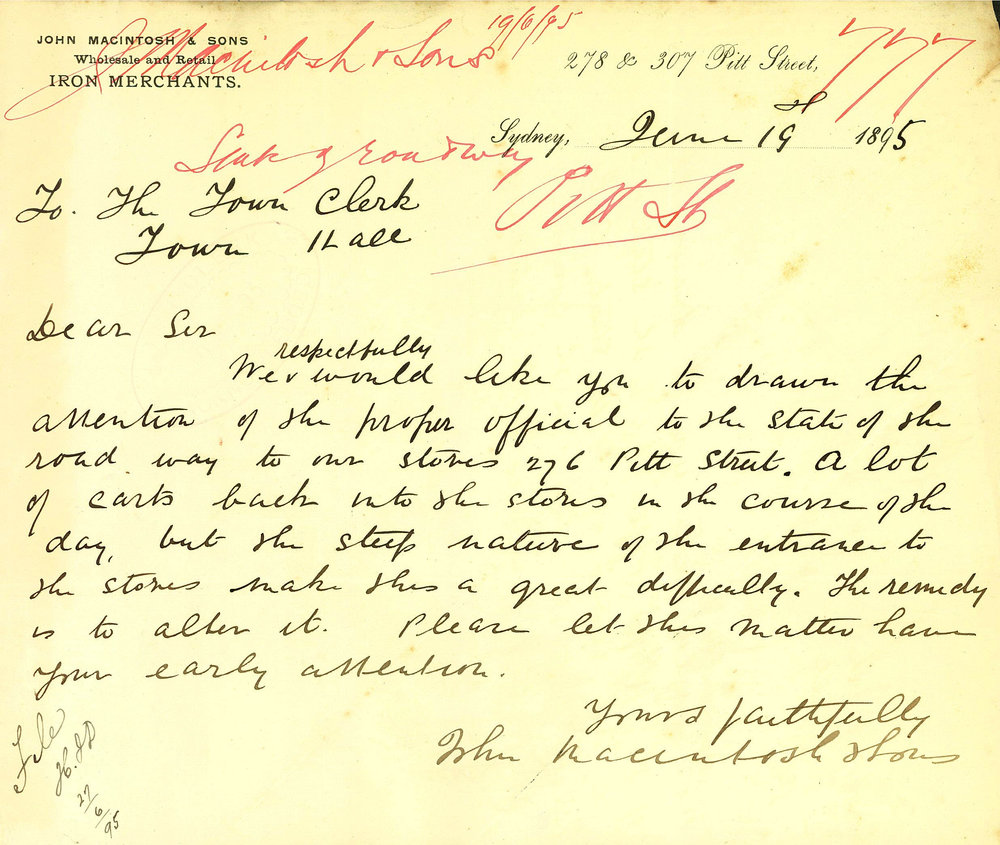 19/6/95
JOHN MACINTOSH & SONS
Wholesale and Retail
IRON MERCHANTS.
J Macintosh & Sons
278 & 307 Pitt Street,
777
Sydney, June 19 1895
State of roadway
Pitt St
To. The Town Clerk
Town Hall
Dear Sir
respectfully
We v would like you to drawn the
attention of the proper official to the state of the
road way to our stores 276 Pitt Street. A lot
of carts back into the stores in the course of the
day, but the steep nature of the entrance to
the stores make this a great difficulty. The remedy
is to alter it. Please let this matter have
your early attention.
Yours faithfully
John Macintosh & Sons
File
27/6/95